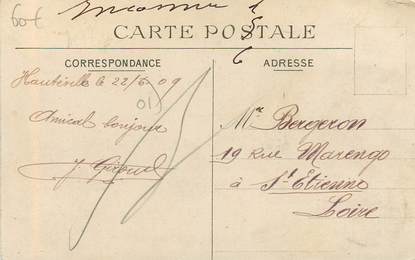 60€
Inconnu
CARTE POSTALE
CORRESPONDANCE
Hauteville le 22/6 09
01
Amical bonjour
ADRESSE
Mr Bergeron
19 Rue Marengo
à St Etienne
Loire